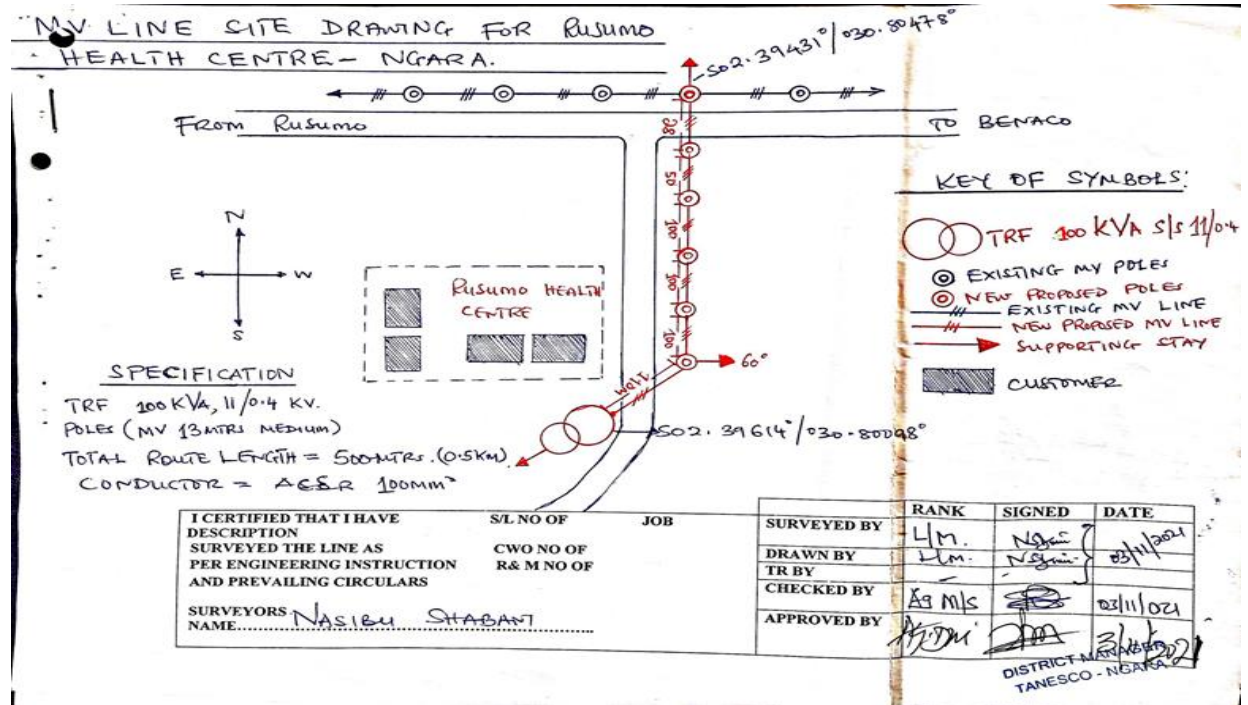 MV LINE SITE DRAWING FOR RUSUMO
HEALTH CENTRE - NGARA.
S02.39431°/030.80478°
FROM RUSUMO
TO BENACO
28
50
100
100
100
60°
110m
S02.39614°/030.80098°
N
E
W
S
RUSUMO HEALTH
CENTRE
KEY OF SYMBOLS:
TRF 100 KVA S/S 11/0.4
EXISTING MV POLES
NEW PROPOSED POLES
EXISTING MV LINE
NEW PROPOSED MV LINE
SUPPORTING STAY
CUSTOMER
SPECIFICATION
TRF 100 KVA, 11/0.4 KV.
POLES (MV 13MTRS MEDIUM)
TOTAL ROUTE LENGTH = 500MTRS. (0.5KM)
CONDUCTOR = 100MM²
I CERTIFIED THAT I HAVE S/L NO OF JOB
DESCRIPTION
SURVEYED THE LINE AS CWO NO OF
PER ENGINEERING INSTRUCTION R& M NO OF
AND PREVAILING CIRCULARS
SURVEYORS
NAME NASIBU SHABANI
RANK SIGNED DATE
SURVEYED BY L/M. 03/11/2021
DRAWN BY L/M.
TR BY -
CHECKED BY Ag M/S 03/11/021
APPROVED BY 3/11/2021
DISTRICT MANAGER
TANESCO - NGARA